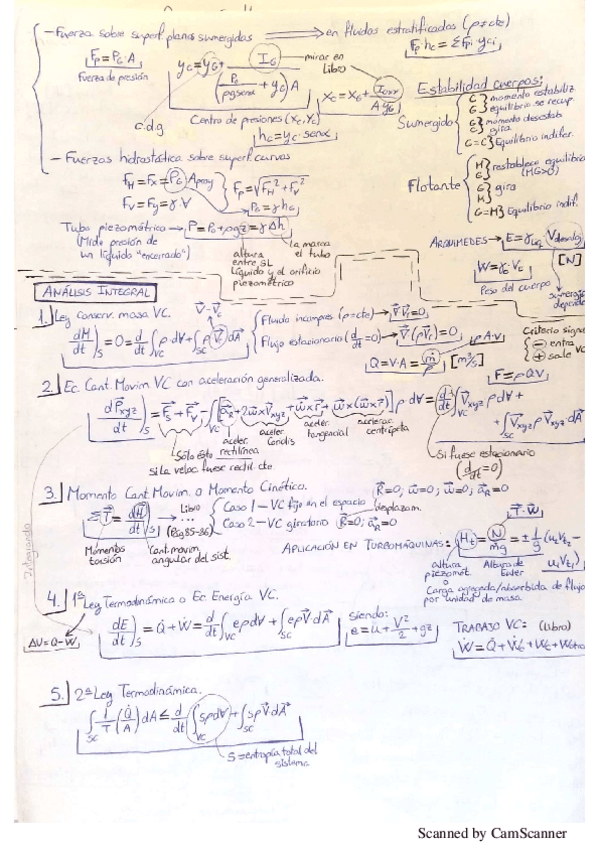 - Fuerza sobre superf. planas sumergidas ⟹ en fluidos estratificados (ρ=cte)
Fp = PG·A
Fuerza de presión
yc = yG + IG / ((Po/ρg senα + yG) A)
mirar en Libro
Fp·hc = ΣFpi yci
xc = xG + Ixy / A yG
c.d.g
Centro de presiones (Xc, Yc)
hc = yc·senα
Estabilidad cuerpos:
Sumergido
momento estabiliz.
equilibrio se recup.
momento desestab
gira
G=C} Equilibrio indifer.
- Fuerzas hidrostática sobre superf. curvas
FH = Fx = PG Aproy
FV = Fy = γ·V
Fp = √(FH² + FV²)
PG = γ hG
Flotante
restablece equilibrio
(MG>0)
gira
G=M} Equilibrio indif.
Tubo piezométrico → P = Po + ρgz = γ Δh
(Mide presión de
un líquido "encerrado")
altura
entre SL
líquido y el orificio
piezométrico
la marca
el tubo
ARQUÍMEDES → E = γ liq. Vdesalog
W = γc Vc [N]
Peso del cuerpo
ANÁLISIS INTEGRAL
1. Ley conserv. masa VC.
V - Vc
dM/dt)s = 0 = d/dt ∫VC ρ dV + ∫SC ρ Vr dA
Fluido incompres (ρ=cte) → ∇Vr = 0
Flujo estacionario (d/dt=0) → ∇(ρVr) = 0
Q = V·A = ṁ/ρ [m³/s]
ρ·A·V
Criterio
(-) entra
(+) sale VC
F = ρQV
2. Ec. Cant. Movim VC con aceleración generalizada.
dPxyz/dt)s = Fs + Fv - ∫VC [aR + 2w×Vxyz + w×r + w×(w×r)] ρ dV = d/dt ∫VC Vxyz ρ dV +
+ ∫SC Vxyz ρ Vxyz·dA
acelr. rectilínea
aceler. Coriolis
aceler. tangencial
acelerac. centrípeta
Sólo ésta
si la veloc. fuese rectil. cte
Si fuese estacionario
(d/dt = 0)
3. Momento Cant. Movim. o Momento Cinético.
R=0; w=0; ẇ=0; aR=0
ΣT = dH/dt)s
Libro → ... (Pág 85-86)
Caso 1 - VC fijo en el espacio
Caso 2 - VC giratorio
desplazam.
R=0; aR=0
Momentos
torsión
Cant. movim
angular del sist
T·W
APLICACIÓN EN TURBOMÁQUINAS: Ht = N/ṁg = ± 1/g (u2 Vt2 -
u1 Vt1)
altura
piezomét.
Altura de
Euler
o
Carga agregada/absorbida de flujo
por unidad de masa
Integrando
4. 1ª Ley Termodinámica o Ec. Energía VC.
ΔU = Q - W
dE/dt)s = Q̇ + Ẇ = d/dt ∫VC eρdV + ∫SC eρV·dA
siendo:
e = u + V²/2 + gz
TRABAJO VC: (Libro)
5. 2ª Ley Termodinámica.
∫SC 1/T (Q̇/A) dA ≤ d/dt ∫VC sρdV + ∫SC sρV·dA
S = entropía total del
sistema
Scanned by CamScanner